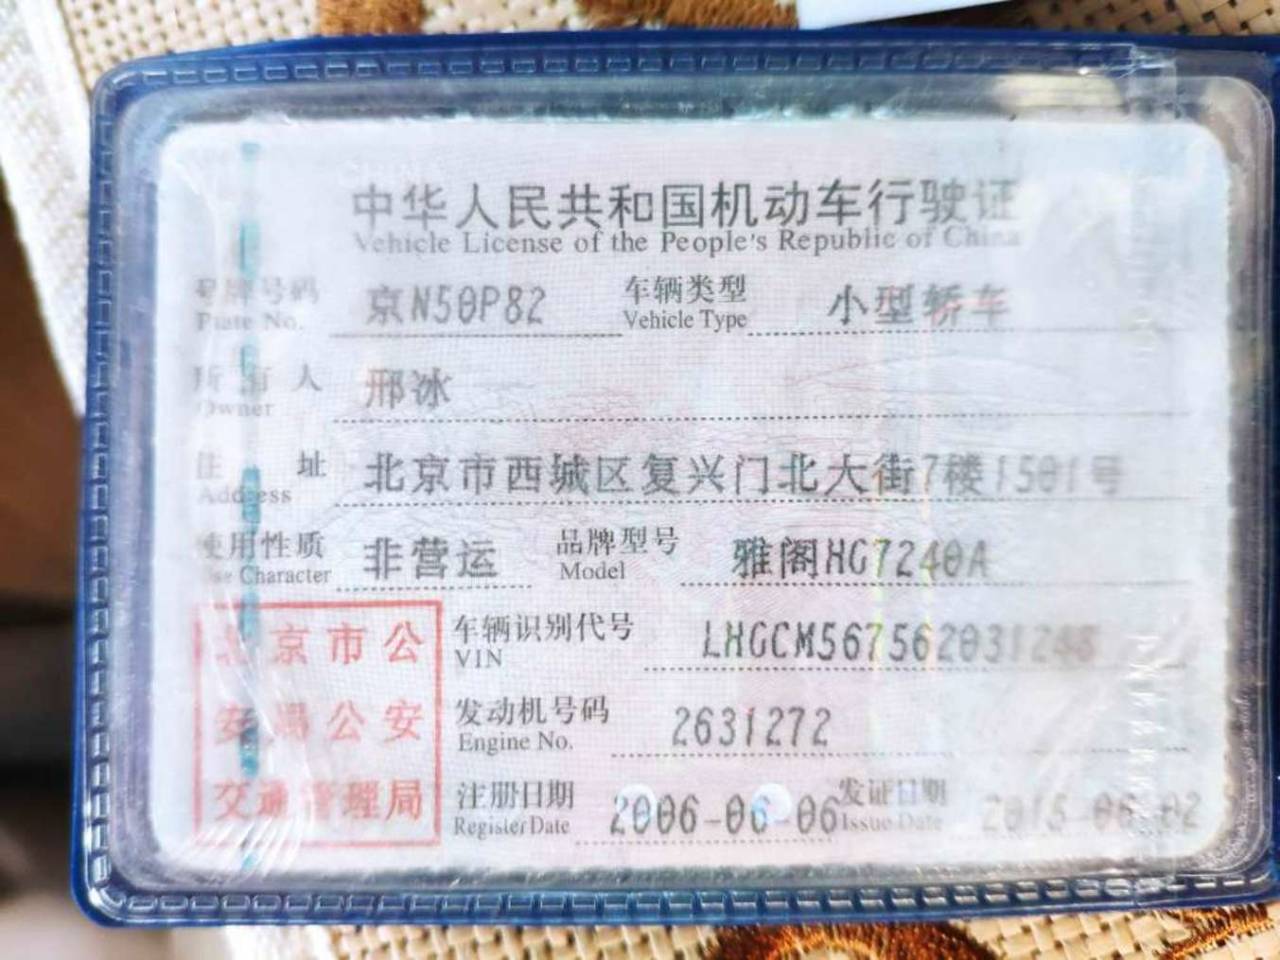 中华人民共和国机动车行驶证
Vehicle License of the People's Republic of China
号牌号码 京N50P82 车辆类型 小型轿车
Plate No. Vehicle Type
所有人 邢冰
Owner
住址 北京市西城区复兴门北大街7楼1501号
Address
使用性质 非营运 品牌型号 雅阁HG7240A
Use Character Model
北京市公 车辆识别代号
VIN
安局公安 发动机号码 2631272
Engine No.
交通管理局 注册日期 2006-06-06 发证日期 2015-06-02
Register Date Issue Date